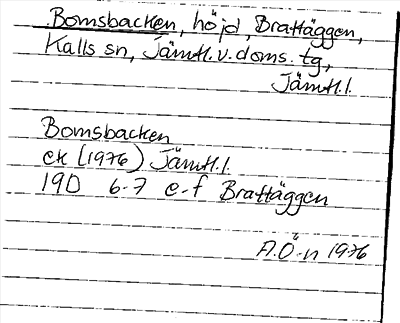 Bomsbacken, höjd, Brattäggen,
Kalls sn, Jämtl. v. doms. tg,
Jämtl. l.
Bomsbacken
ek (1976) Jämtl. l.
19D 6-7 e-f Brattäggen
A.Ö-n 1976